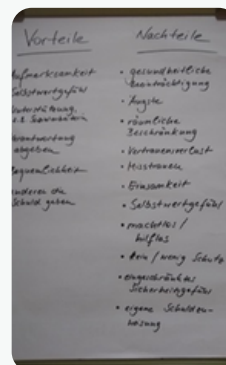 Vorteile
ufmerksamkeit
elbstwertgefühl
nterstützung
z.B.
erantwortung
abgeben
equemlichkeit
nderen die
Schuld geben
Nachteile
• gesundheitliche
Beeinträchtigung
• Ängste
• räumliche
Beschränkung
• Vertrauensverlust
• Misstrauen
• Einsamkeit
• Selbstwertgefühl
• machtlos /
hilflos
• kein / wenig Schutz
• eingeschränktes
Sicherheitsgefühl
• eigene Schulden-